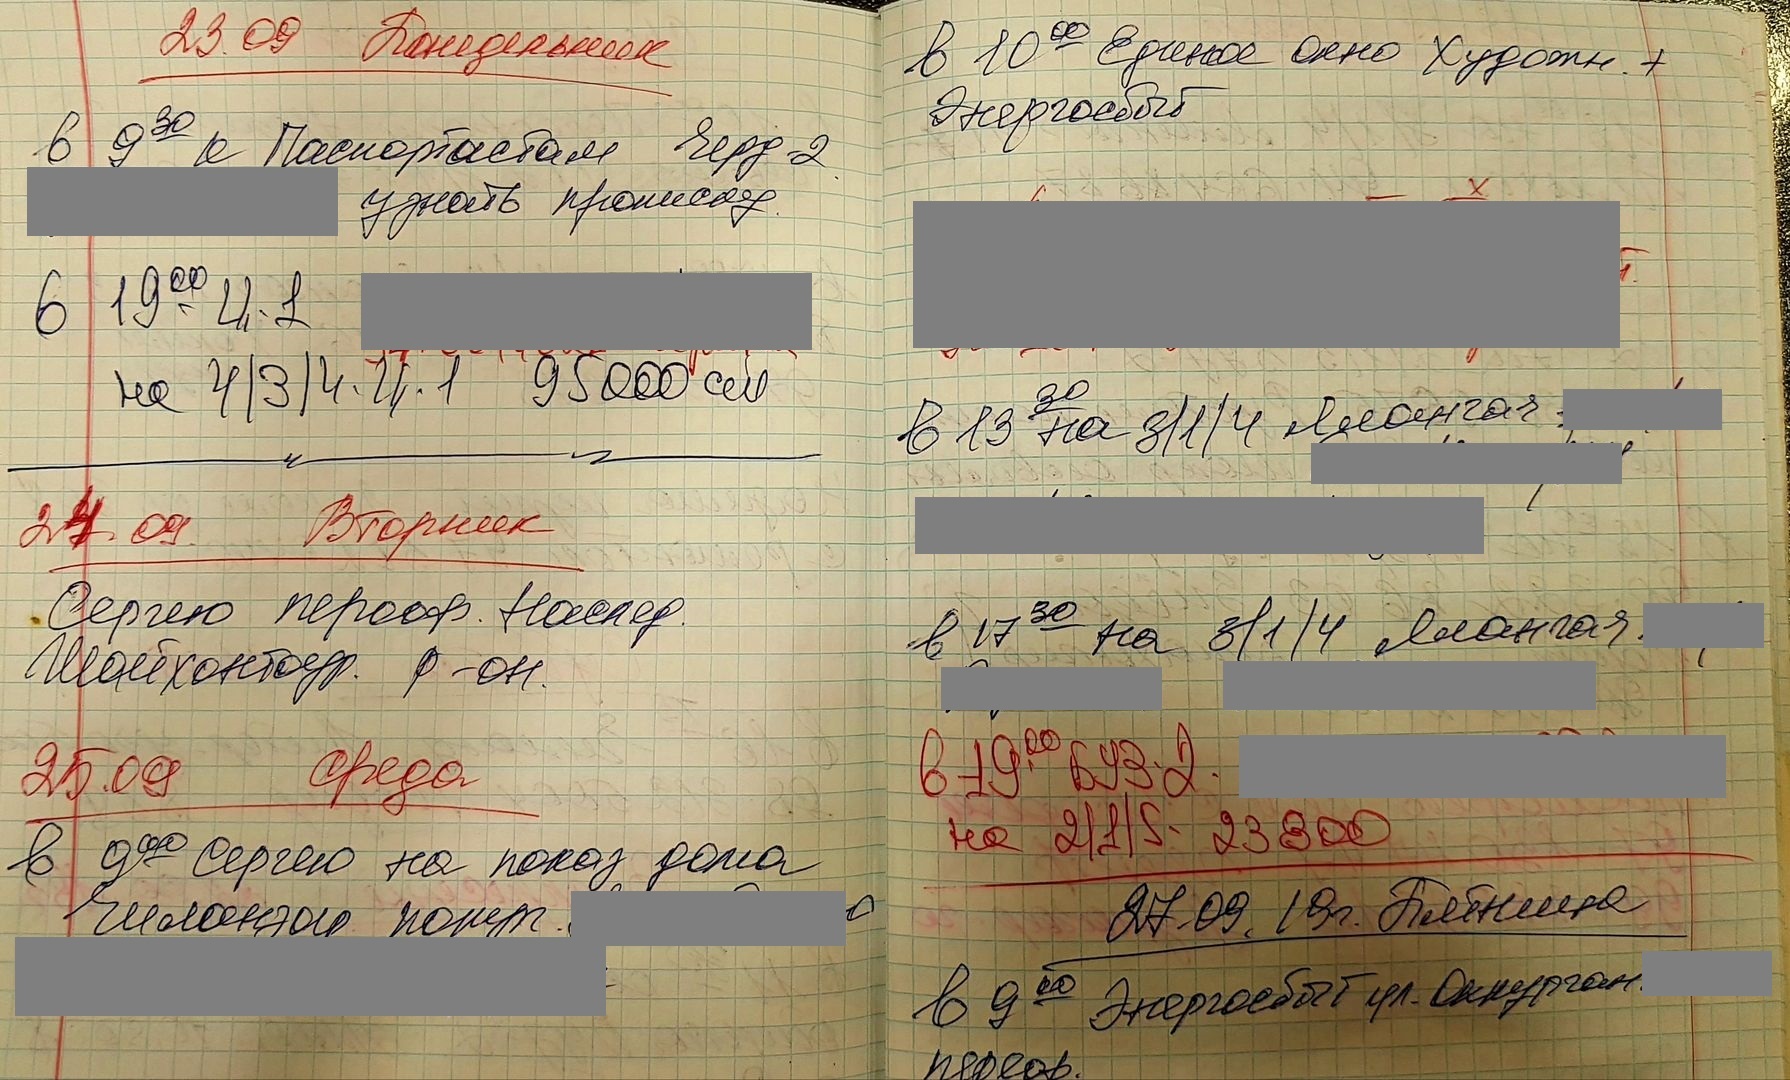 23.09 Понедельник
в 9³⁰ к Паспортистам Черд-2
узнать прописку.
в 19⁰⁰ Ц.1
на 4/3/4. Ц.1 95000
24.09. Вторник
Сергею переоф. Наслед.
Шайхонтаур. р-он.
25.09 Среда
в 9⁰⁰ Сергею на показ дома
Чиланзар
в 10⁰⁰ Единое окно Художн. +
Энергосбыт
в 13³⁰ на 3/1/4 Ялангач
в 17³⁰ на 3/1/4 Ялангач.
в 19⁰⁰ БУЗ.2.
на 2/1/5. 23300
27.09.19г. Пятница
в 9⁰⁰ Энергосбыт ул. Аккурган.
переоф.